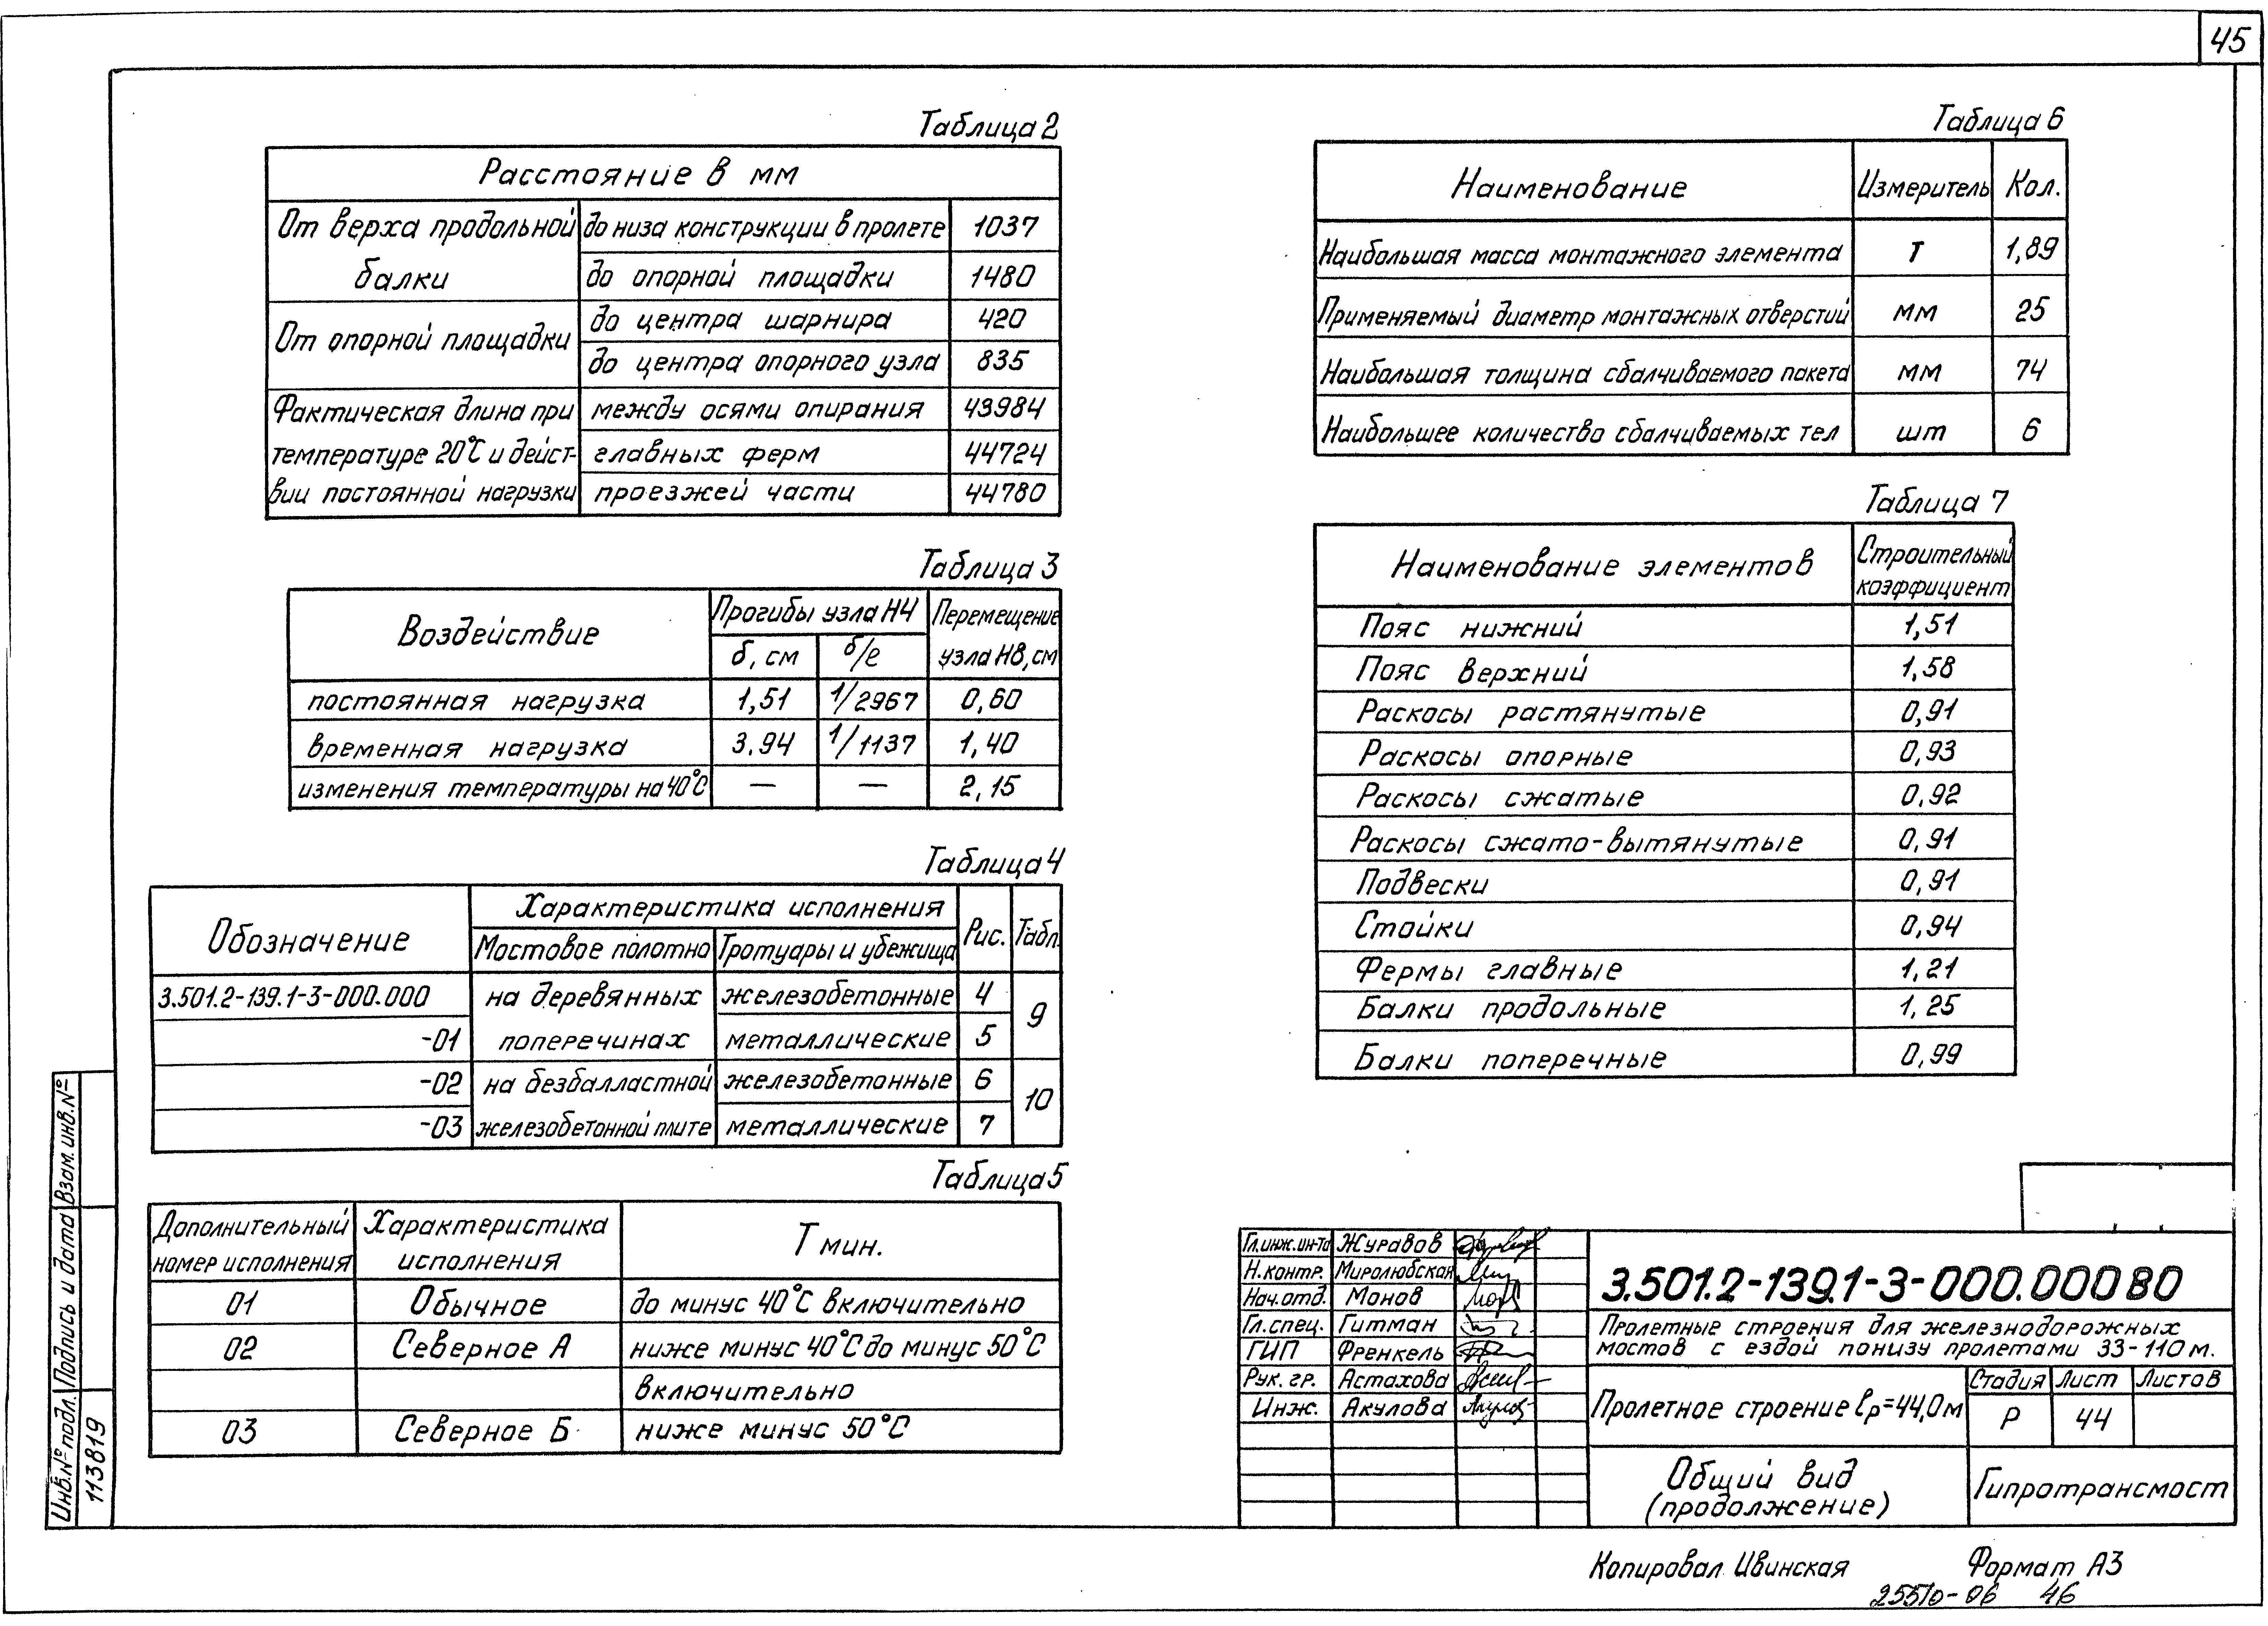 45
Таблица 2
Расстояние в мм
От верха продольной балки
до низа конструкции в пролете 1037
до опорной площадки 1480
От опорной площадки
до центра шарнира 420
до центра опорного узла 835
Фактическая длина при температуре 20°С и дейст-вии постоянной нагрузки
между осями опирания 43984
главных ферм 44724
проезжей части 44780
Таблица 3
Воздействие
Прогибы узла Н4
Перемещение узла Н8, см
б, см б/е
постоянная нагрузка 1,51 1/2967 0,60
временная нагрузка 3.94 1/1137 1,40
изменения температуры на 40°С — — 2,15
Таблица 4
Обозначение
Характеристика исполнения
Рис. Табл.
Мостовое полотно Тротуары и убежища
3.501.2-139.1-3-000.000 на деревянных железобетонные 4 9
-01 поперечинах металлические 5
-02 на безбалластной железобетонные 6 10
-03 железобетонной плите металлические 7
Таблица 5
Дополнительный номер исполнения
Характеристика исполнения
Т мин.
01 Обычное до минус 40°С включительно
02 Северное А ниже минус 40°С до минус 50°С
включительно
03 Северное Б ниже минус 50°С
Таблица 6
Наименование Измеритель Кол.
Наибольшая масса монтажного элемента т 1,89
Применяемый диаметр монтажных отверстий мм 25
Наибольшая толщина сбалчиваемого пакета мм 74
Наибольшее количество сбалчиваемых тел шт 6
Таблица 7
Наименование элементов Строительный коэффициент
Пояс нижний 1,51
Пояс верхний 1,58
Раскосы растянутые 0,91
Раскосы опорные 0,93
Раскосы сжатые 0,92
Раскосы сжато-вытянутые 0,91
Подвески 0,91
Стойки 0,94
Фермы главные 1,21
Балки продольные 1,25
Балки поперечные 0,99
Гл.инж.ин-та Журавов
Н.контр. Миролюбская
Нач.отд. Монов
Гл.спец. Гитман
ГИП Френкель
Рук. гр. Астахова
Инж. Акулова
3.501.2-139.1-3-000.000 В0
Пролетные строения для железнодорожных
мостов с ездой понизу пролетами 33-110 м.
Пролетное строение ℓр=44,0м
Стадия Лист Листов
Р 44
Общий вид
(продолжение)
Гипротрансмост
Инв.№ подл. Подпись и дата Взам. инв.№
113819
Копировал Ивинская Формат А3
25510-06 46